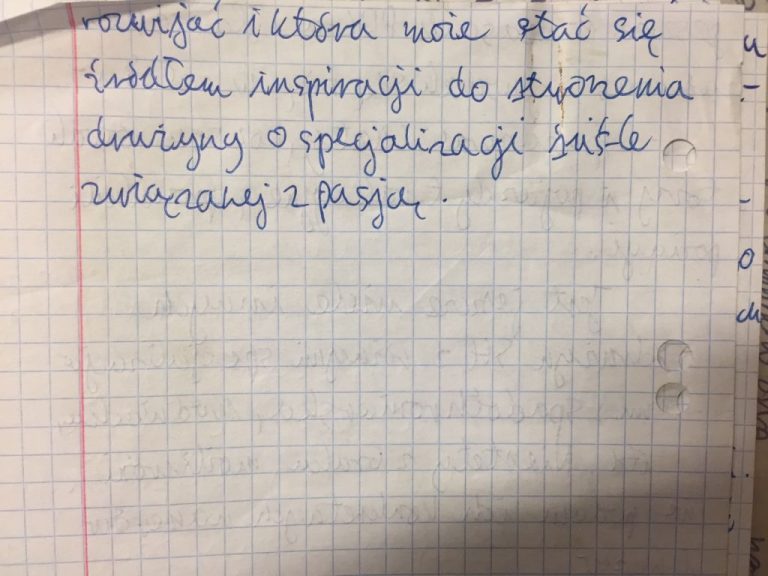 rozwijać i która może stać się
źródłem inspiracji do stworzenia
drużyny o specjalizacji ściśle
związanej z pasją.